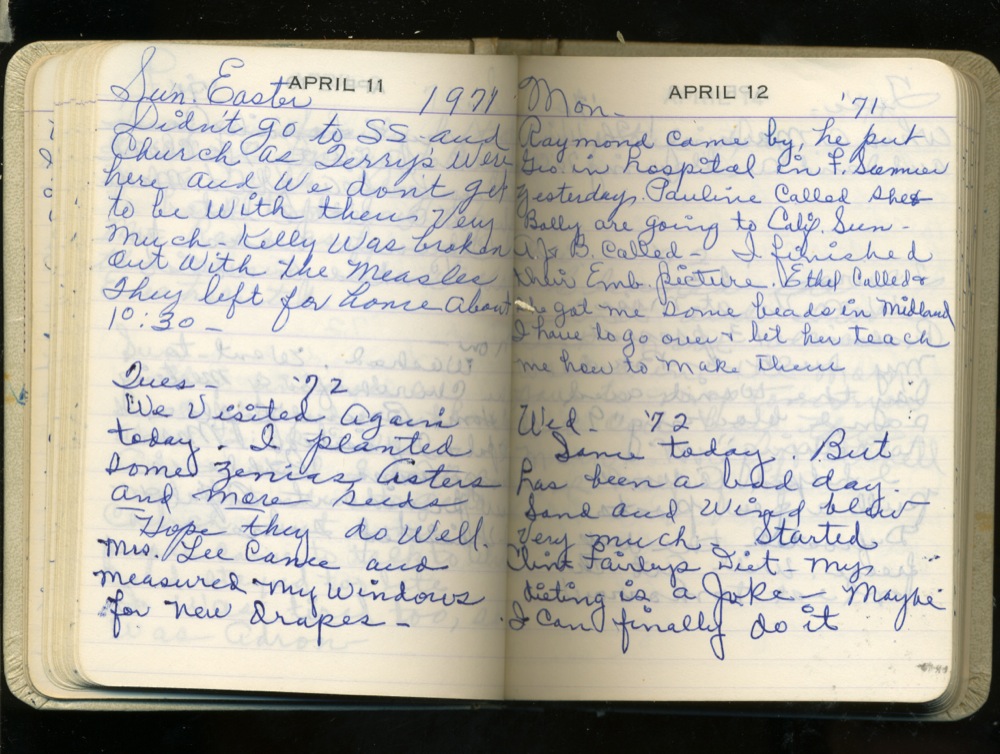 APRIL 11
Sun. Easter 1971
Didn't go to SS and
Church as Terry's were
here and We don't get
to be With them Very
Much - Kelly Was broken
out With the Measles
They left for home About
10:30 -
Tues - '72
We Visited Again
today. I planted
some Zenias, Asters
And More seeds
Hope they do Well.
Mrs. Lee Came and
measured My Windows
for New Drapes -
APRIL 12
Mon - '71
Raymond came by, he put
Geo in hospital in F. Sumner
yesterday. Pauline Called she &
Bolly are going to Calif. Sun -
A.J. & B. Called - I finished
their Emb. picture. Ethel Called &
she got me some beads in Midland
I have to go over & let her teach
me how to Make them
Wed - '72
Same today. But
has been a bad day.
Sand and Wind blew
Very much. Started
Diet - My
dieting is a Joke - Maybe
I Can finally do it